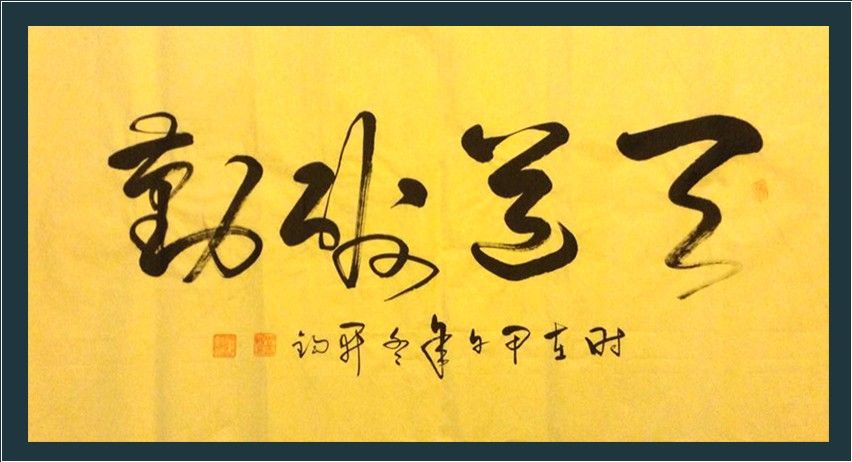 天道酬勤
时在甲午年冬